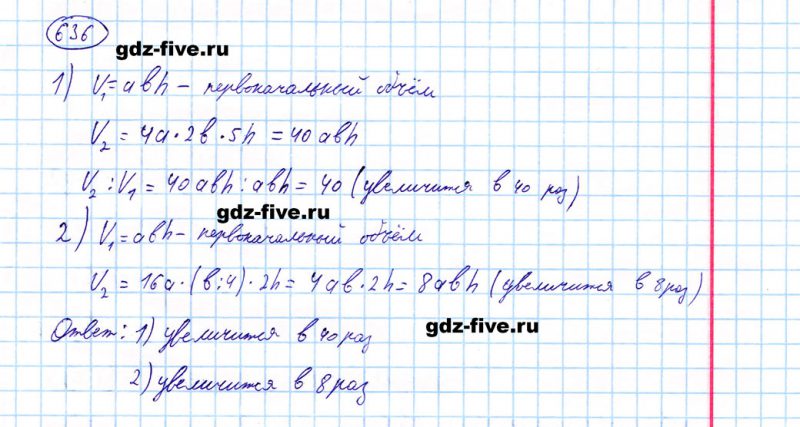 636
gdz-five.ru
1) V₁ = abh – первоначальный объём
V₂ = 4a · 2b · 5h = 40abh
V₂ : V₁ = 40abh : abh = 40 (увеличится в 40 раз)
gdz-five.ru
2) V₁ = abh – первоначальный объём
V₂ = 16a · (b:4) · 2h = 4ab · 2h = 8abh (увеличится в 8 раз)
Ответ: 1) увеличится в 40 раз
gdz-five.ru
2) увеличится в 8 раз